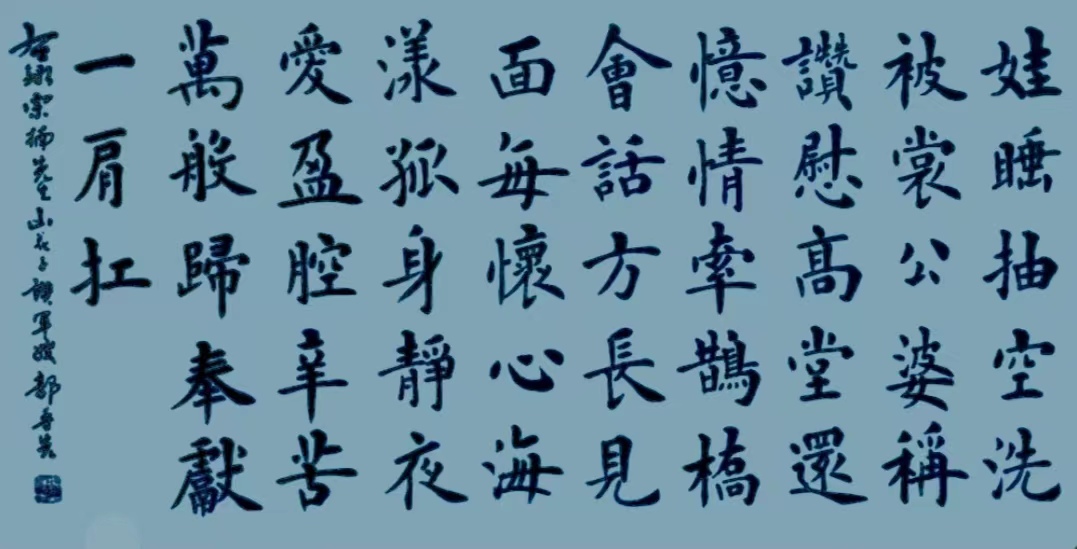 娃睡抽空洗
被裳公婆稱
讚慰高堂還
憶情牽鵲橋
會話方長見
面每懷心海
漾孤身靜夜
愛盈腔辛苦
萬般歸奉獻
一肩扛
先生山花子讚軍嫂